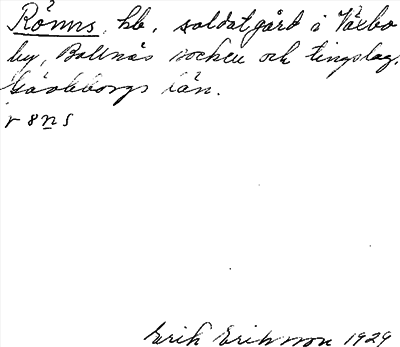 Rönns, hb., soldatgård i Växbo
by, Bollnäs socken och tingslag,
Gävleborgs län.
r 8 n s
Erik Eriksson 1929